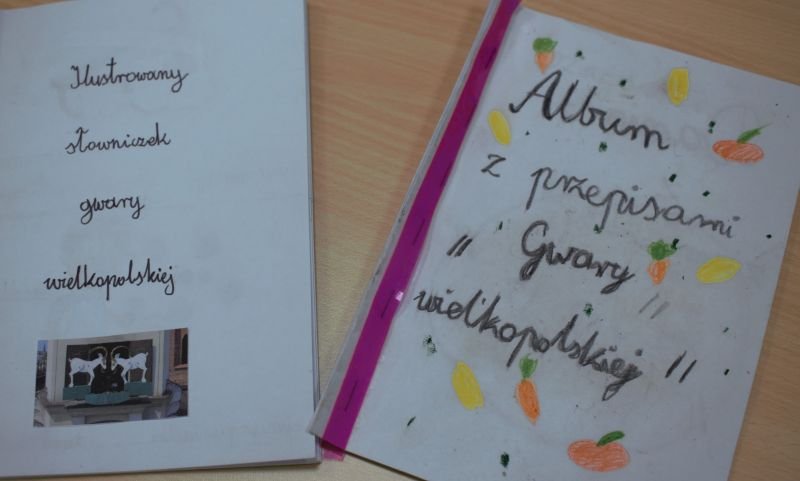 Ilustrowany
słowniczek
gwary
wielkopolskiej
Album
z przepisami
" Gwary
wielkopolskiej "